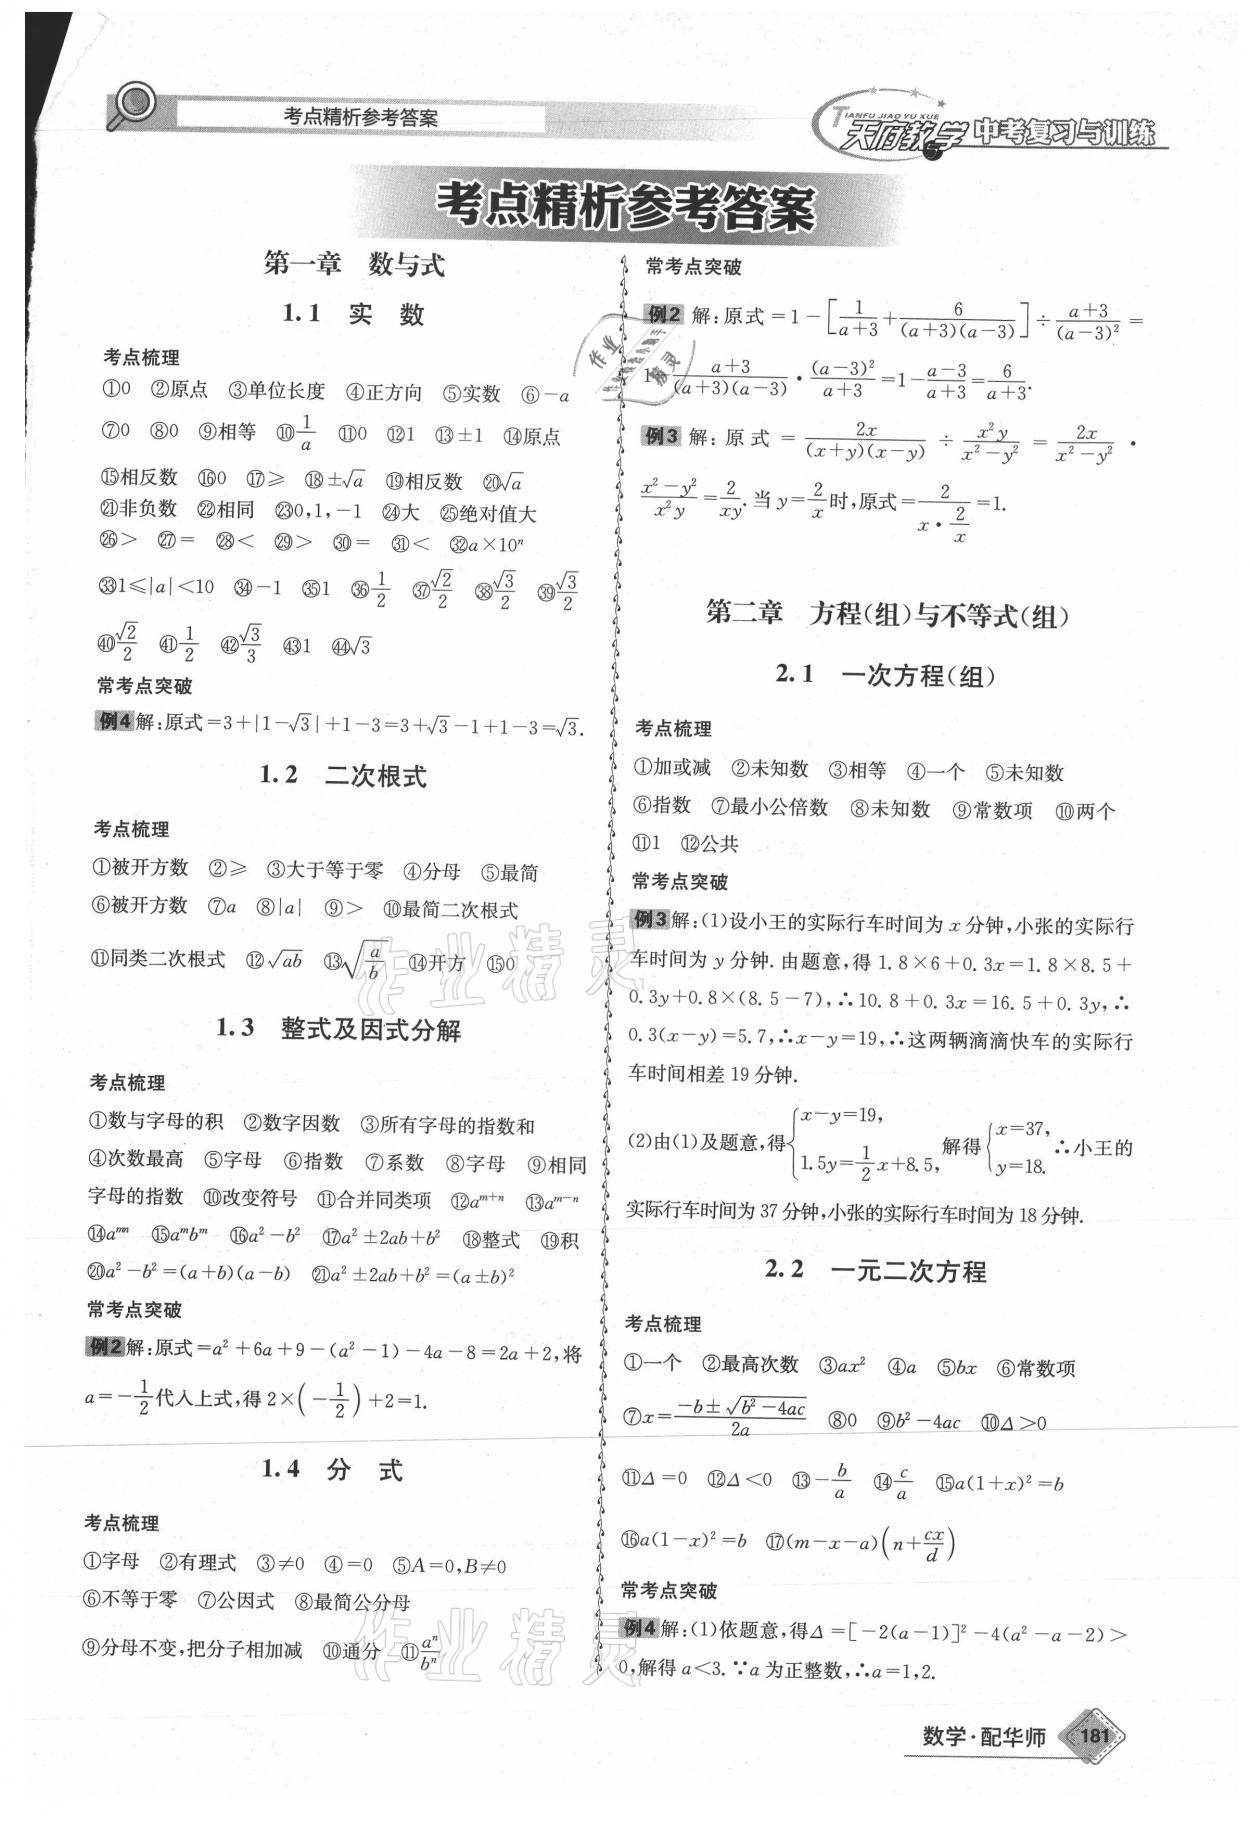 考点精析参考答案
TIANFU JIAO YU XUE
天府教与学 中考复习与训练
考点精析参考答案
第一章 数与式
1.1 实 数
考点梳理
①0 ②原点 ③单位长度 ④正方向 ⑤实数 ⑥-a
⑦0 ⑧0 ⑨相等 ⑩1/a ⑪0 ⑫1 ⑬±1 ⑭原点
⑮相反数 ⑯0 ⑰≥ ⑱±√a ⑲相反数 ⑳√a
㉑非负数 ㉒相同 ㉓0,1,-1 ㉔大 ㉕绝对值大
㉖> ㉗= ㉘< ㉙> ㉚= ㉛< ㉜a×10ⁿ
㉝1≤|a|<10 ㉞-1 ㉟1 ㊱1/2 ㊲√2/2 ㊳√3/2 ㊴√3/2
㊵√2/2 ㊶1/2 ㊷√3/3 ㊸1 ㊹√3
常考点突破
例4 解:原式=3+|1-√3|+1-3=3+√3-1+1-3=√3.
1.2 二次根式
考点梳理
①被开方数 ②≥ ③大于等于零 ④分母 ⑤最简
⑥被开方数 ⑦a ⑧|a| ⑨> ⑩最简二次根式
⑪同类二次根式 ⑫√ab ⑬√(a/b) ⑭开方 ⑮0
1.3 整式及因式分解
考点梳理
①数与字母的积 ②数字因数 ③所有字母的指数和
④次数最高 ⑤字母 ⑥指数 ⑦系数 ⑧字母 ⑨相同
字母的指数 ⑩改变符号 ⑪合并同类项 ⑫aᵐ⁺ⁿ ⑬aᵐ⁻ⁿ
⑭aᵐⁿ ⑮aᵐbᵐ ⑯a²-b² ⑰a²±2ab+b² ⑱整式 ⑲积
⑳a²-b²=(a+b)(a-b) ㉑a²±2ab+b²=(a±b)²
常考点突破
例2 解:原式=a²+6a+9-(a²-1)-4a-8=2a+2,将
a=-1/2代入上式,得2×(-1/2)+2=1.
1.4 分 式
考点梳理
①字母 ②有理式 ③≠0 ④=0 ⑤A=0,B≠0
⑥不等于零 ⑦公因式 ⑧最简公分母
⑨分母不变,把分子相加减 ⑩通分 ⑪aⁿ/bⁿ
常考点突破
例2 解:原式=1-[1/(a+3)+6/((a+3)(a-3))]÷(a+3)/(a-3)²=
1-(a+3)/((a+3)(a-3))·(a-3)²/(a+3)=1-(a-3)/(a+3)=6/(a+3).
例3 解:原式=2x/((x+y)(x-y))÷x²y/(x²-y²)=2x/(x²-y²)·
(x²-y²)/x²y=2/xy.当y=2/x时,原式=2/(x·2/x)=1.
第二章 方程(组)与不等式(组)
2.1 一次方程(组)
考点梳理
①加或减 ②未知数 ③相等 ④一个 ⑤未知数
⑥指数 ⑦最小公倍数 ⑧未知数 ⑨常数项 ⑩两个
⑪1 ⑫公共
常考点突破
例3 解:(1)设小王的实际行车时间为x分钟,小张的实际行
车时间为y分钟.由题意,得1.8×6+0.3x=1.8×8.5+
0.3y+0.8×(8.5-7),∴10.8+0.3x=16.5+0.3y,∴
0.3(x-y)=5.7,∴x-y=19,∴这两辆滴滴快车的实际行
车时间相差19分钟.
(2)由(1)及题意,得{x-y=19, 1.5y=1/2x+8.5, 解得{x=37, y=18. ∴小王的
实际行车时间为37分钟,小张的实际行车时间为18分钟.
2.2 一元二次方程
考点梳理
①一个 ②最高次数 ③ax² ④a ⑤bx ⑥常数项
⑦x=(-b±√(b²-4ac))/2a ⑧0 ⑨b²-4ac ⑩Δ>0
⑪Δ=0 ⑫Δ<0 ⑬-b/a ⑭c/a ⑮a(1+x)²=b
⑯a(1-x)²=b ⑰(m-x-a)(n+cx/d)
常考点突破
例4 解:(1)依题意,得Δ=[-2(a-1)]²-4(a²-a-2)>
0,解得a<3.∵a为正整数,∴a=1,2.
数学·配华师 181
作业精灵
作业精灵
作业精灵